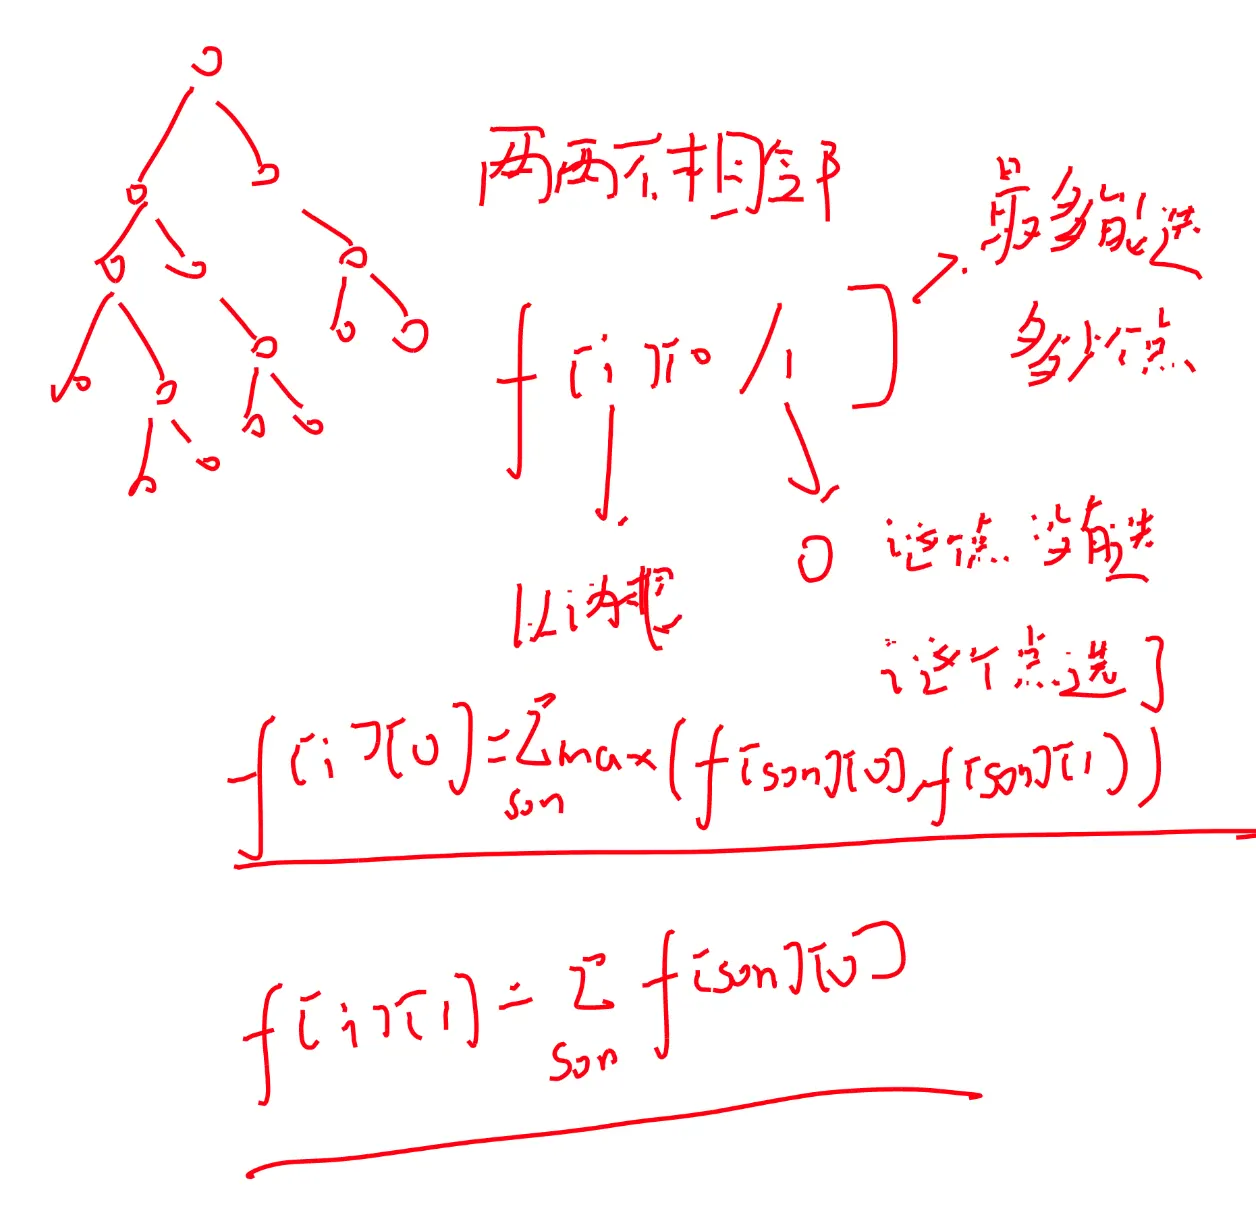 两两不相邻
最多能选
多少个点
f[i][0/1]
0 这个点没有选
以i为根
这个点选
f[i][0]=∑max(f[son][0],f[son][1])
son
f[i][1]=∑f[son][0]
son